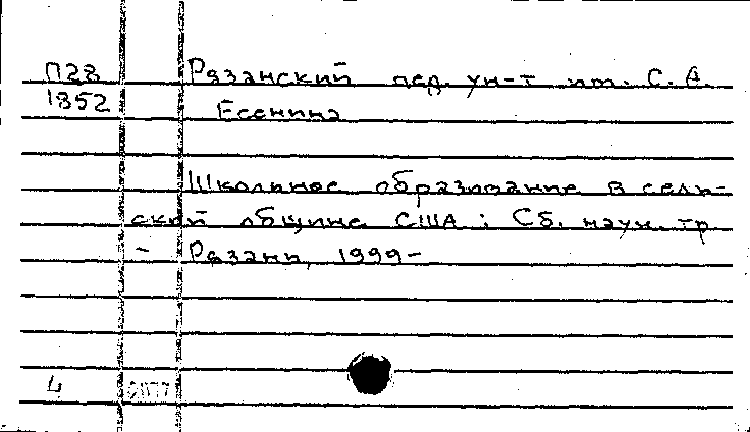 П28 Рязанский пед. ун-т им. С. А.
1852 Есенина
Школьное образование в сель-
ской общине США : Сб. науч. тр
- Рязань, 1999-
4